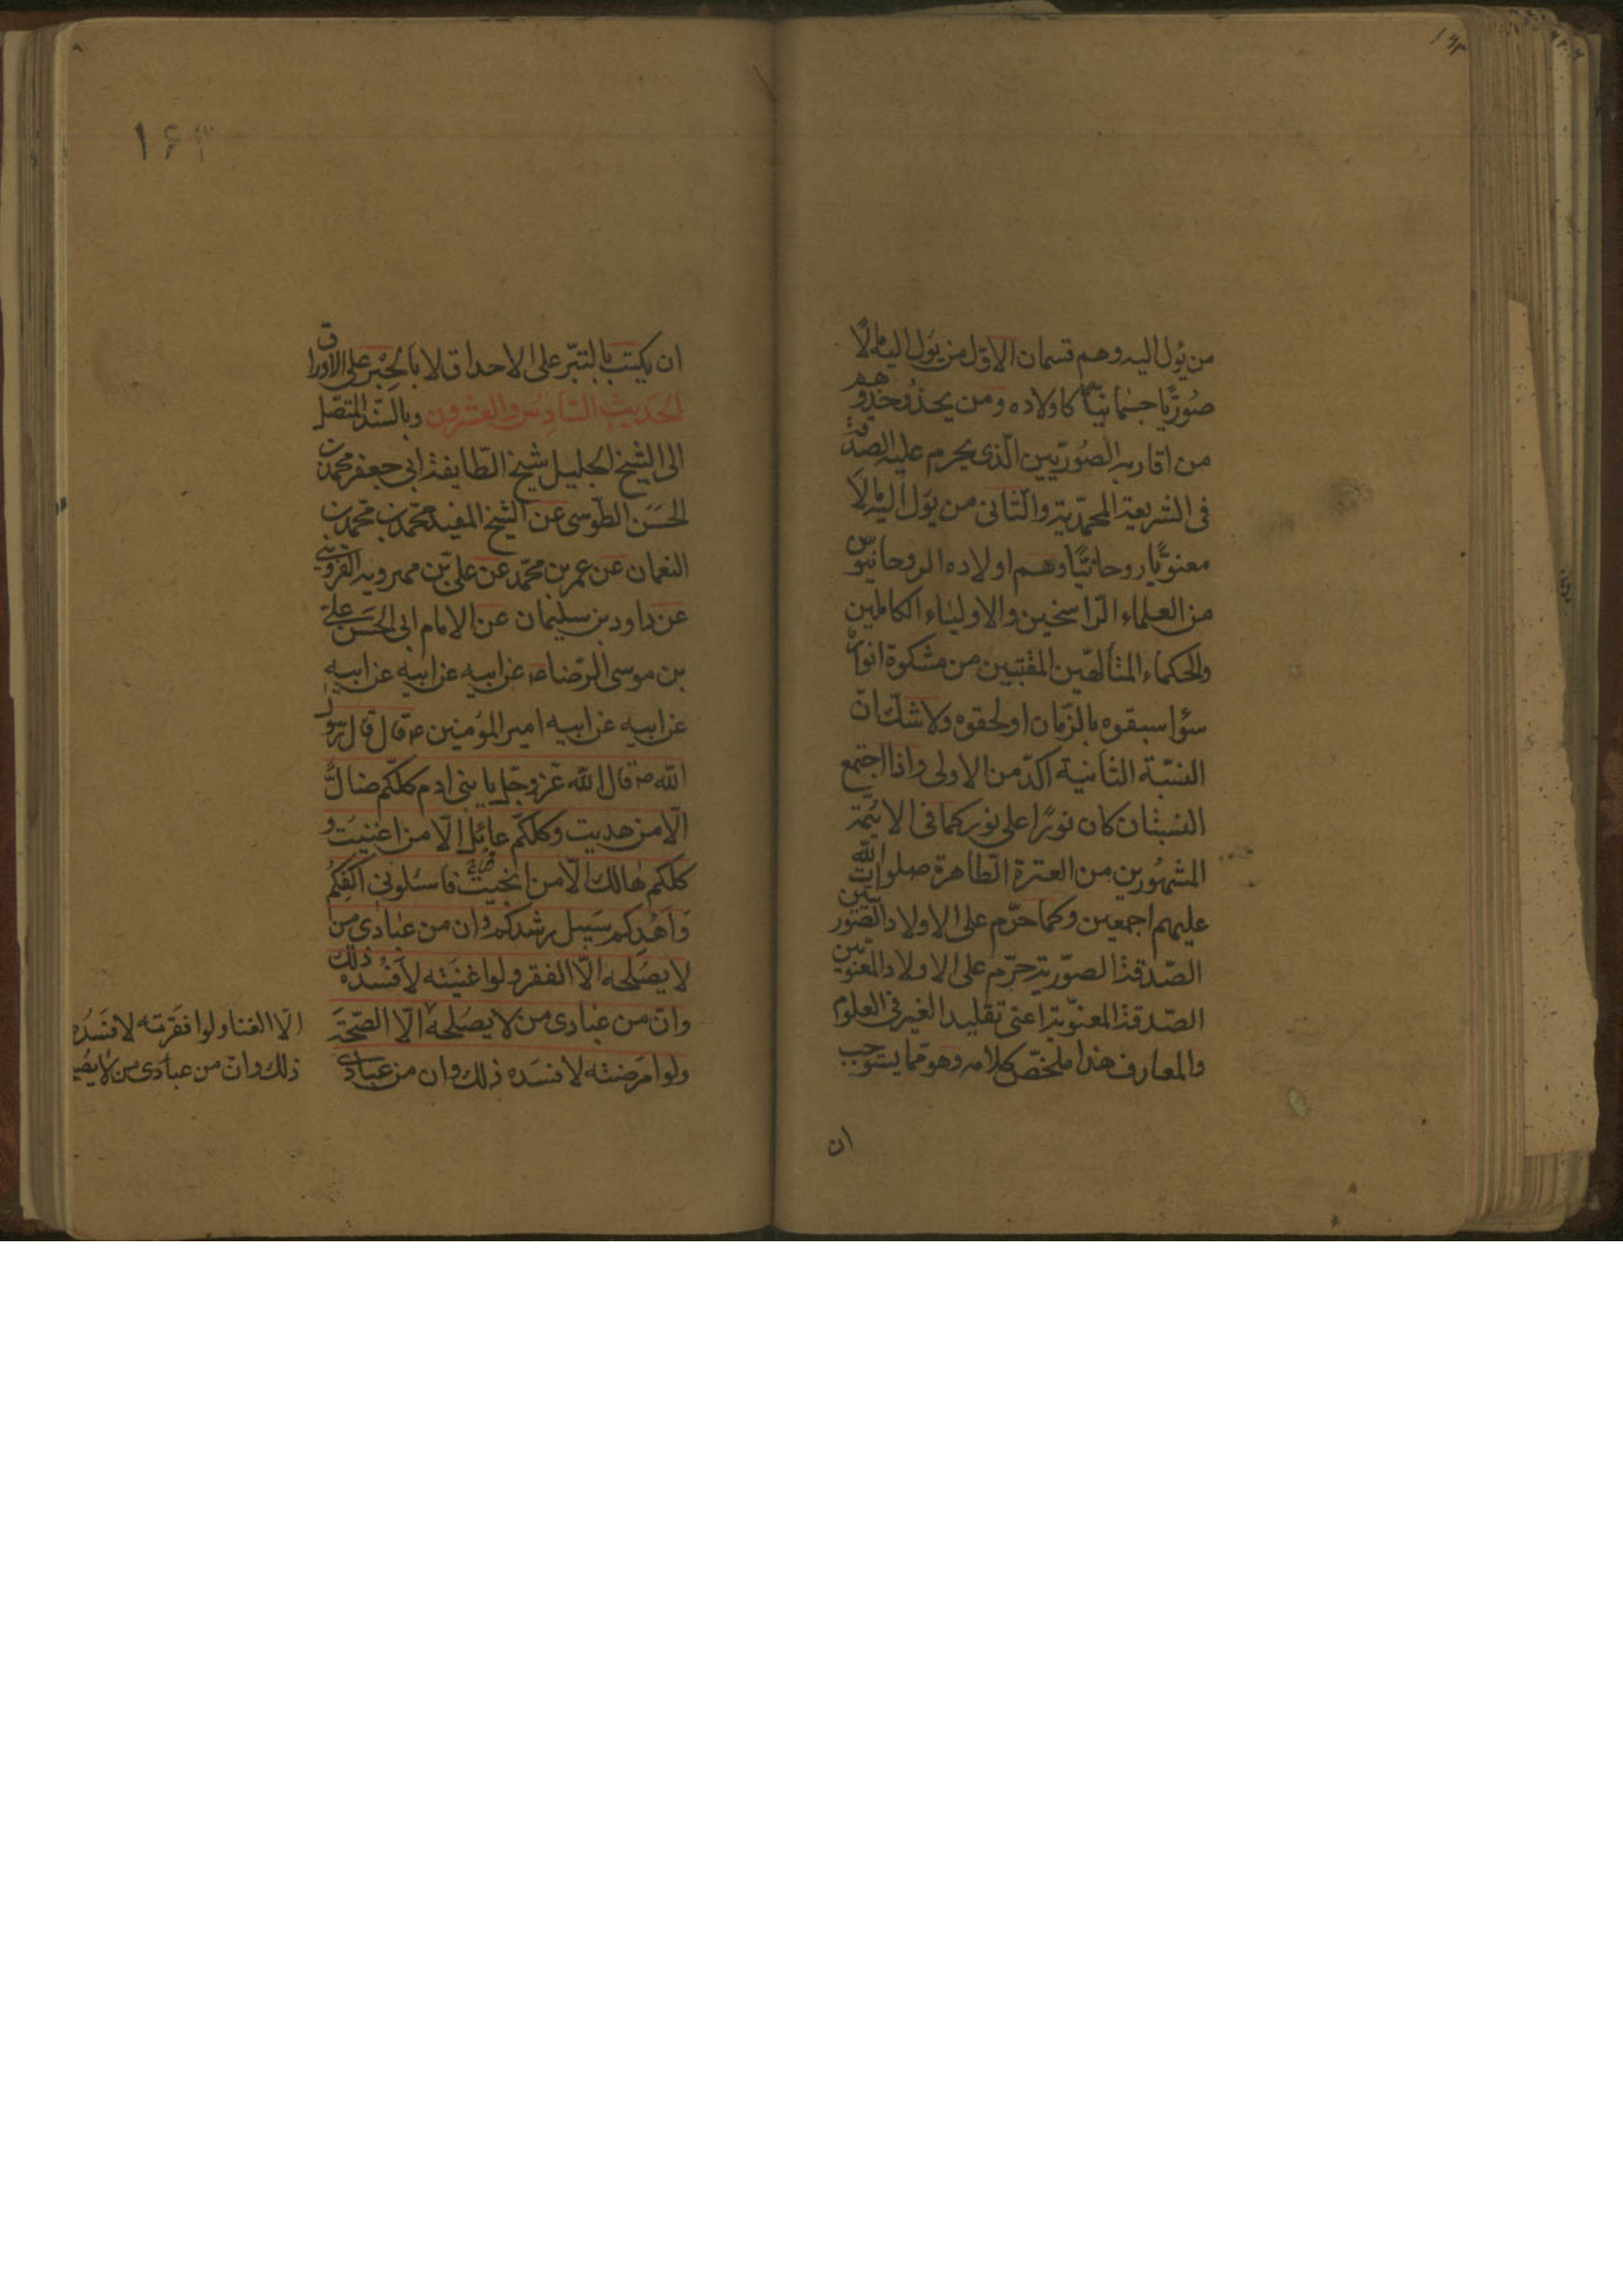 من يؤل اليه وهم قسمان الاوّل من يؤل اليه مالًا
صُوريًّا جسمانيًّا كاولاده ومن يحذو حذوهم
من اقاربه الصُوريّين الّذى يحرم عليه الصدقة
فى الشريعة المحمّدية والثّانى من يؤل اليه مالًا
معنويًّا روحانيًّا وهم اولاده الروحانيّون
من العلماء الرّاسخين والاولياء الكاملين
والحكماء المتألهّين المقتبسين من مشكوة انواره
سواء سبقوه بالزّمان او لحقوه ولا شكّ انّ
النسّبة الثانية اكدّ من الاولى واذا اجتمع
النسبتان كان نورًا على نور كما فى الائمّة
المشهورين من العترة الطّاهرة صلوات الله
عليهم اجمعين وكما حرّم على الاولاد الصّوريّين
الصّدقة الصوّرية حرّم على الاولاد المعنويّين
الصّدقة المعنوّية اعنى تقليد الغير فى العلوم
والمعارف هذا ملخصّ كلامه وهو ممّا يستوجب
ان
١٦٣
ان يكتب بالتبّر على الاحداق لا بالحِبْر على الاوراق
الحَديث السّادِس والعشرون وبالسّند المتصّل
الى الشيخ الجليل شيخ الطّايفة ابى جعفر محمّد بن
الحَسَن الطّوسى عن الشيخ المفيد محمّد بن محمّد بن
النعمان عن عمر بن محمّد عن علىّ بن مهرويه القزوينى
عن داود بن سليمان عن الامام ابى الحَسَن علىّ
بن موسى الرّضا ع عن ابيه عن ابيه عن ابيه
عن ابيه عن ابيه امير المؤمنين ع قال قال رسول
الله ص قال الله عزّ وجّل يا بنى ادم كلكّم ضالٌّ
الّا من هديت وكلكّم عائل الّا من اغنيت و
كلكم هالك الّا من انجيت فاسئلونى اكفكُم
وَاَهْدِكم سَبيل رشدكم وان من عبادى من
لا يصلحه الّا الفقر ولو اغنيَته لاَفْسَده ذلك
وانّ من عبادى من لا يصلحه الّا الصّحّة
ولو امرَضته لافسَده ذلك وان من عبادى
الّا الغنا ولو افقرته لافسَده
ذلك وانّ من عبادى من لا يص